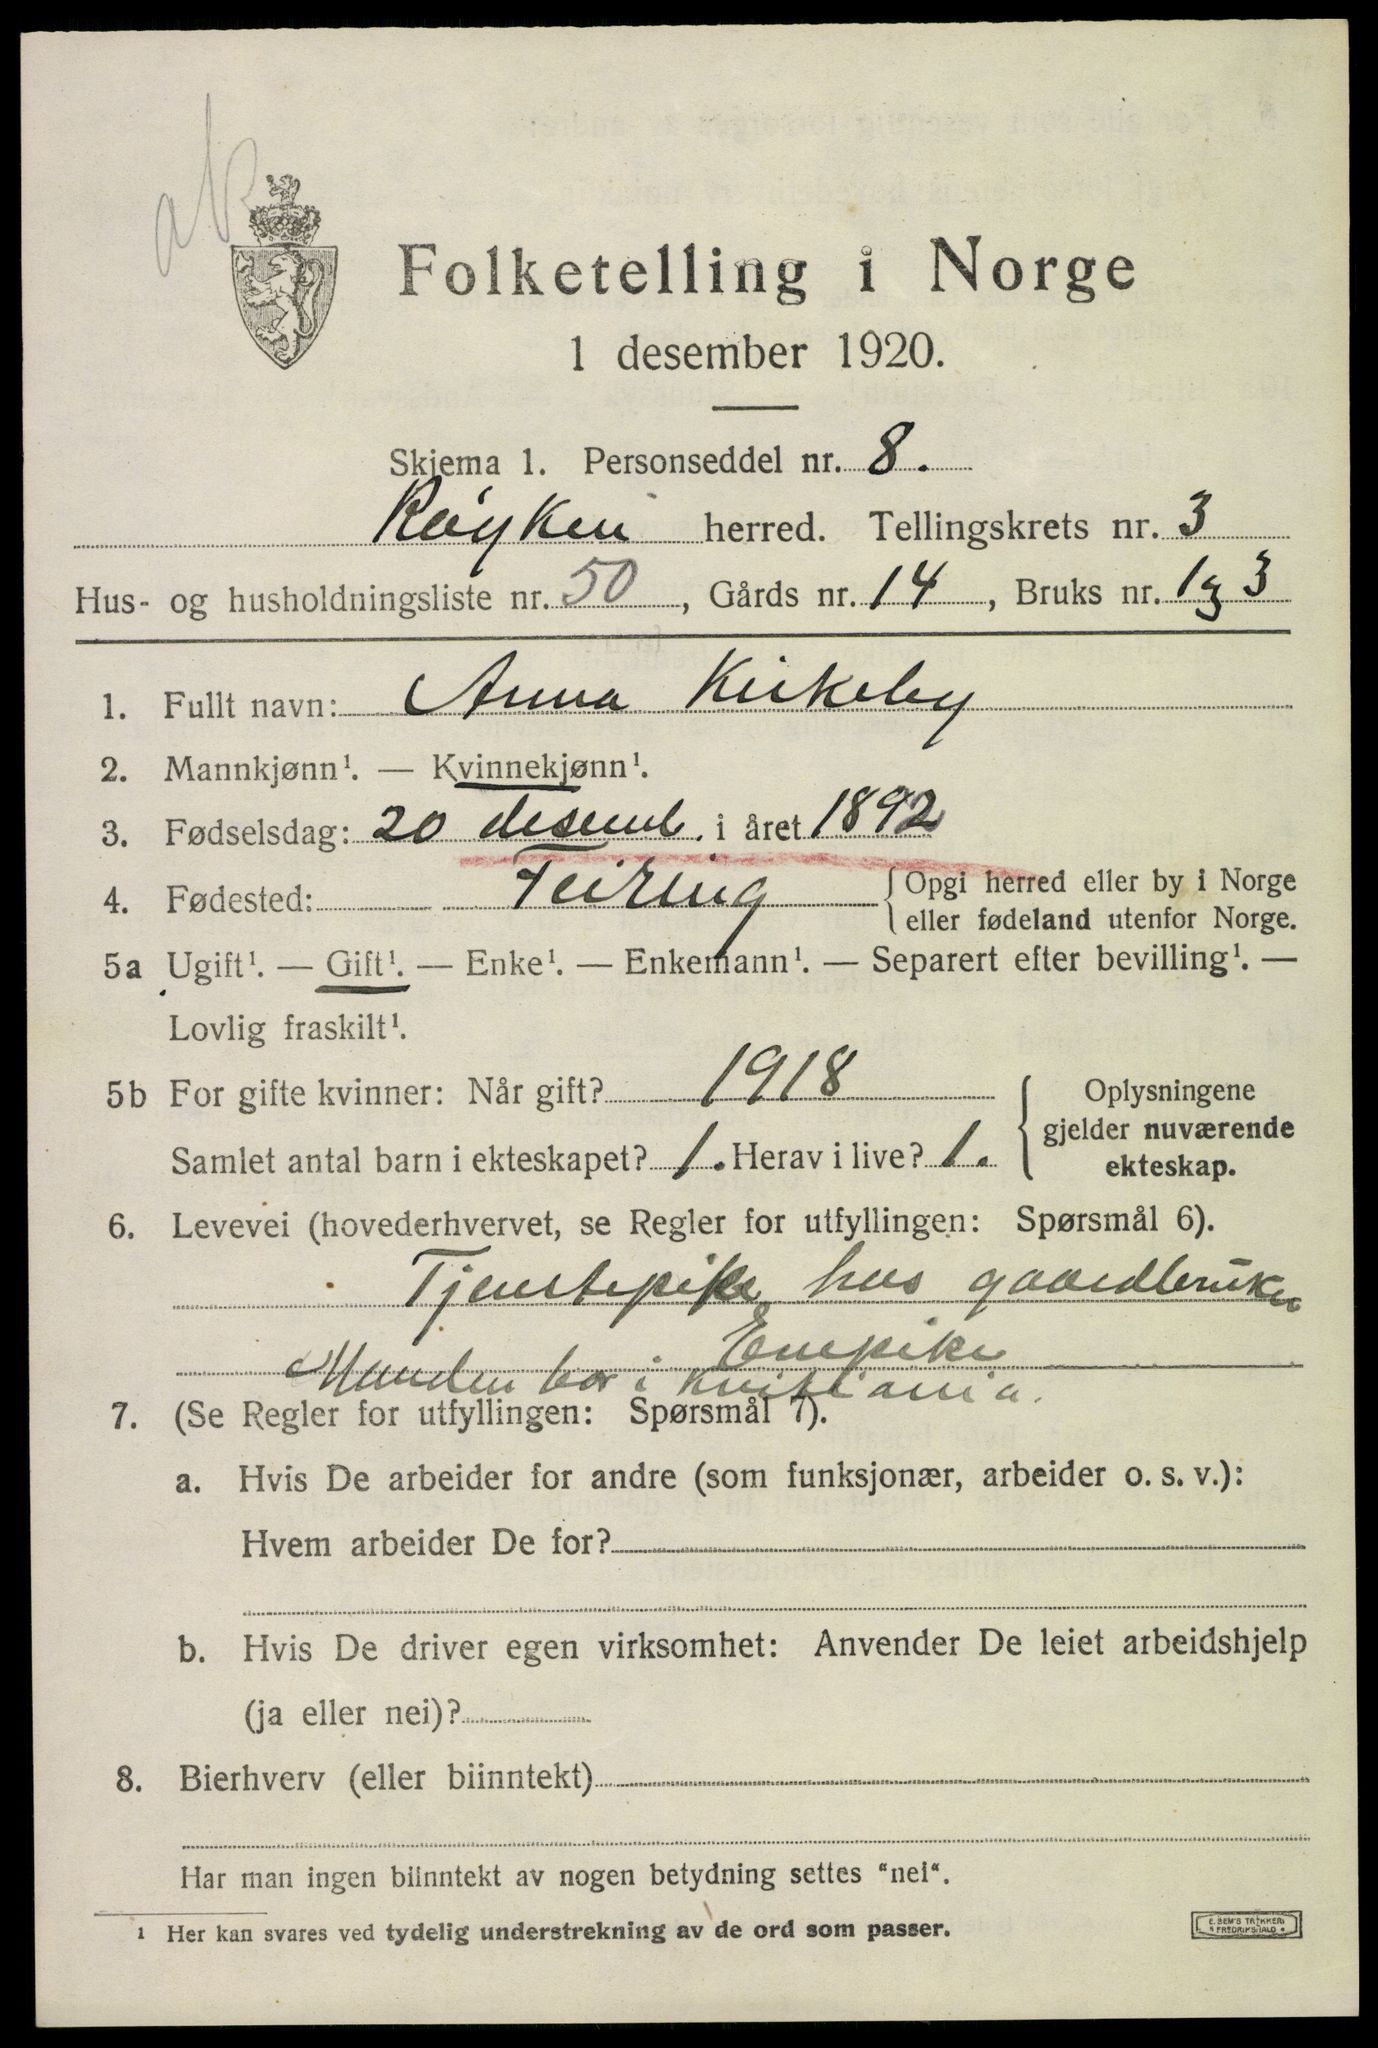 ab
Folketelling i Norge
1 desember 1920.
Skjema 1. Personseddel nr. 8.
Røyken herred. Tellingskrets nr. 3
Hus- og husholdningsliste nr. 50, Gårds nr. 14, Bruks nr. 1 og 3
1. Fullt navn: Anna Kirkeby
2. Mannkjønn¹. — Kvinnekjønn¹.
3. Fødselsdag: 20 desemb. i året 1892
4. Fødested: Feiring { Opgi herred eller by i Norge
eller fødeland utenfor Norge.
5a Ugift¹. — Gift¹. — Enke¹. — Enkemann¹. — Separert efter bevilling¹. —
Lovlig fraskilt¹.
5b For gifte kvinner: Når gift? 1918
Samlet antal barn i ekteskapet? 1. Herav i live? 1.
Oplysningene
gjelder nuværende
ekteskap.
6. Levevei (hovederhvervet, se Regler for utfyllingen: Spørsmål 6).
Tjenstepike hos gaardbruker
Enepike
Manden bor i Kristiania.
7. (Se Regler for utfyllingen: Spørsmål 7).
a. Hvis De arbeider for andre (som funksjonær, arbeider o. s. v.):
Hvem arbeider De for?
b. Hvis De driver egen virksomhet: Anvender De leiet arbeidshjelp
(ja eller nei)?
8. Bierhverv (eller biinntekt)
Har man ingen biinntekt av nogen betydning settes "nei".
¹ Her kan svares ved tydelig understrekning av de ord som passer.
E. SEM'S TRYKKERI
FREDRIKSHALD